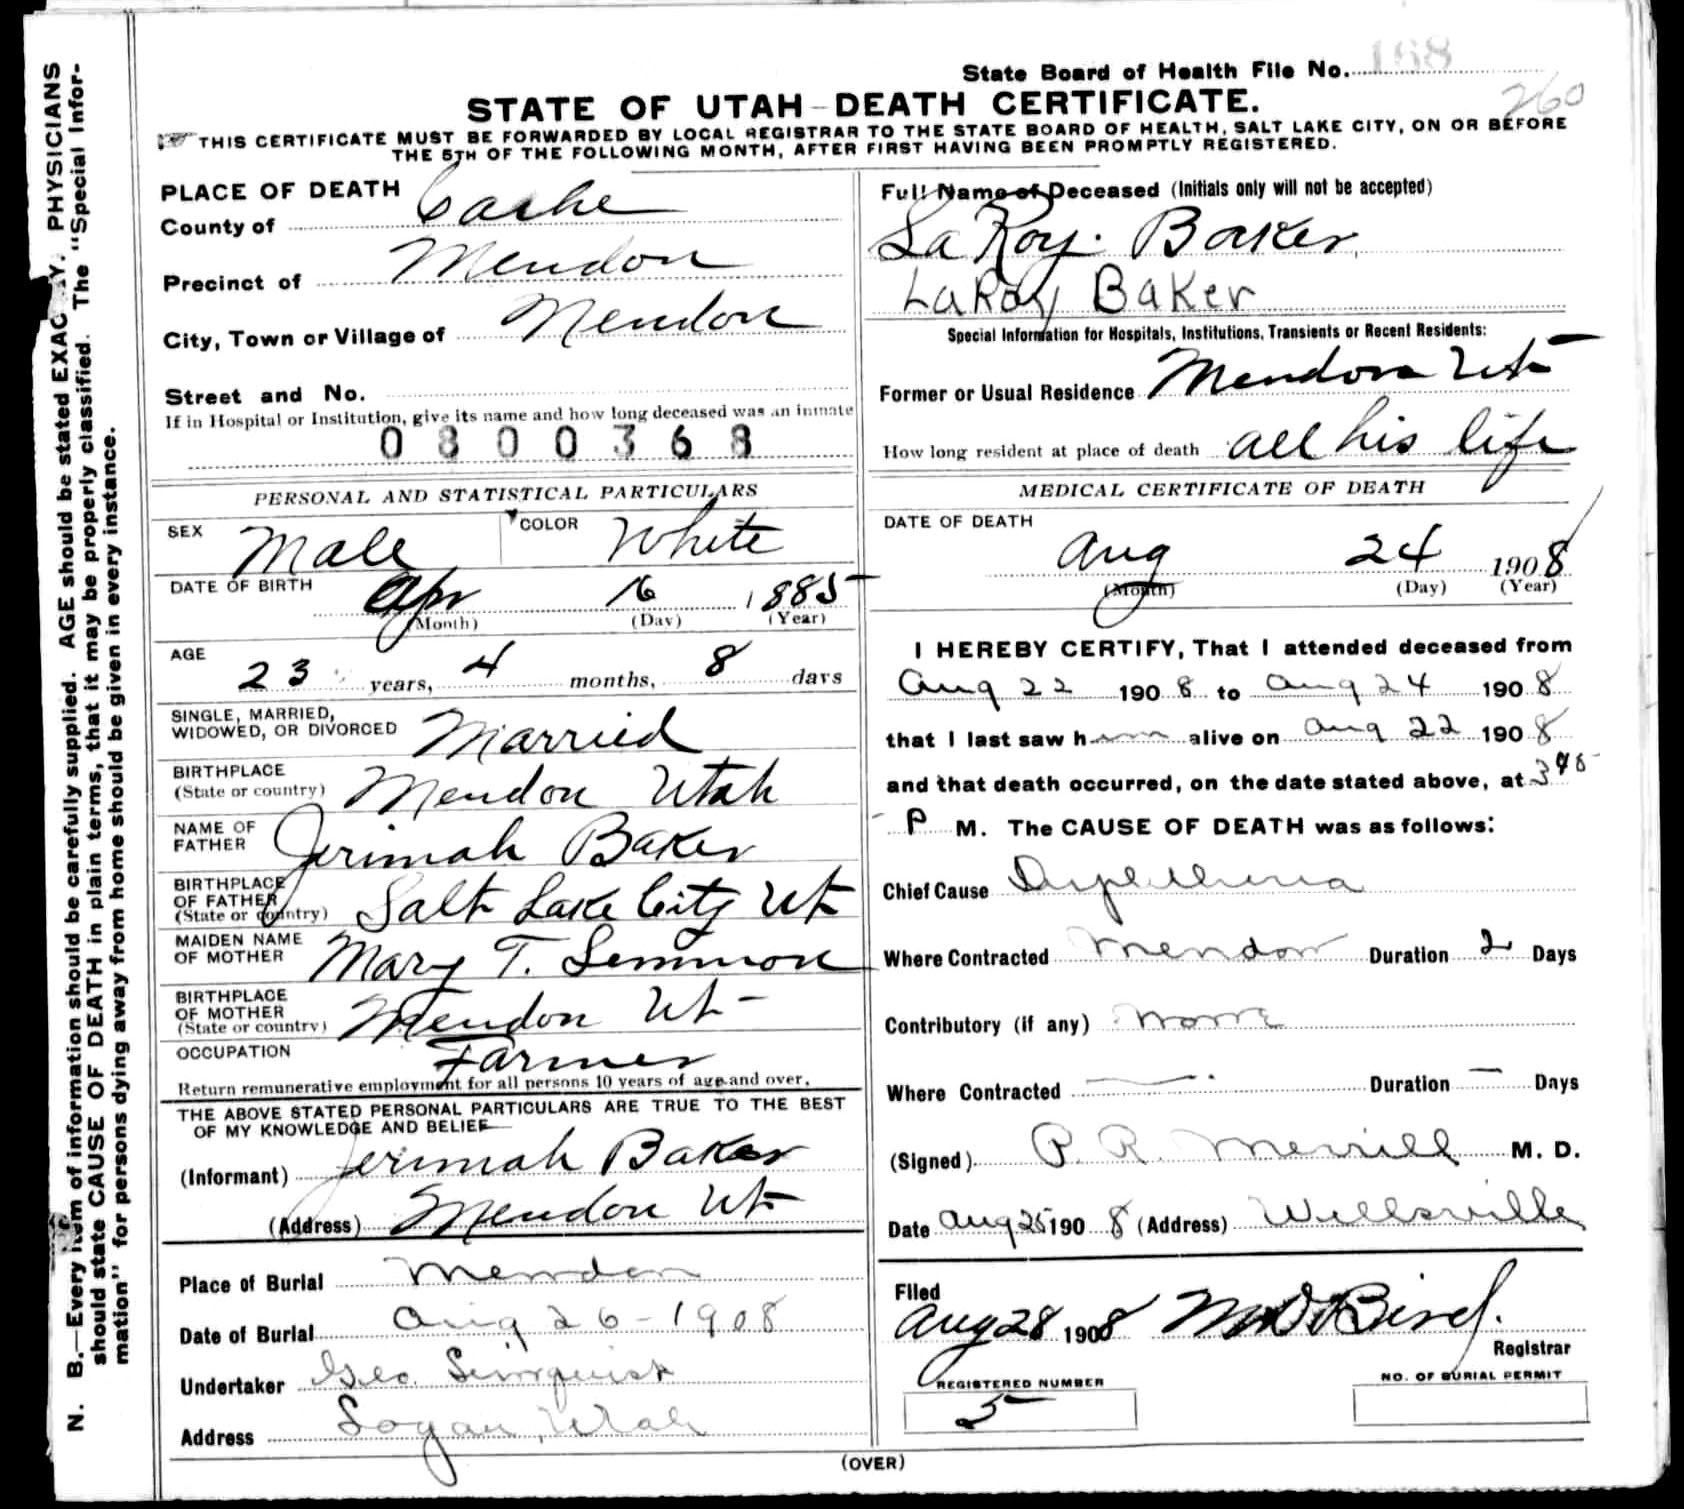 State Board of Health File No. 168
260
STATE OF UTAH–DEATH CERTIFICATE.
THIS CERTIFICATE MUST BE FORWARDED BY LOCAL REGISTRAR TO THE STATE BOARD OF HEALTH, SALT LAKE CITY, ON OR BEFORE
THE 5TH OF THE FOLLOWING MONTH, AFTER FIRST HAVING BEEN PROMPTLY REGISTERED.
PLACE OF DEATH
County of Cache
Precinct of Mendon
City, Town or Village of Mendon
Street and No.
If in Hospital or Institution, give its name and how long deceased was an inmate
0800368
PERSONAL AND STATISTICAL PARTICULARS
SEX Male COLOR White
DATE OF BIRTH Apr 16 1885
(Month) (Day) (Year)
AGE 23 years, 4 months, 8 days
SINGLE, MARRIED,
WIDOWED, OR DIVORCED Married
BIRTHPLACE
(State or country) Mendon Utah
NAME OF
FATHER Jerimah Baker
BIRTHPLACE
OF FATHER
(State or country) Salt Lake City Ut
MAIDEN NAME
OF MOTHER Mary T. Lemmon
BIRTHPLACE
OF MOTHER
(State or country) Mendon Ut
OCCUPATION Farmer
Return remunerative employment for all persons 10 years of age and over.
THE ABOVE STATED PERSONAL PARTICULARS ARE TRUE TO THE BEST
OF MY KNOWLEDGE AND BELIEF
(Informant) Jerimah Baker
(Address) Mendon Ut
Place of Burial Mendon
Date of Burial Aug 26-1908
Undertaker Geo.
Address Logan, Utah
Full Name of Deceased (Initials only will not be accepted)
LaRoy. Baker
LaRoy Baker
Special Information for Hospitals, Institutions, Transients or Recent Residents:
Former or Usual Residence Mendon Ut
How long resident at place of death all his life
MEDICAL CERTIFICATE OF DEATH
DATE OF DEATH
Aug 24 1908
(Month) (Day) (Year)
I HEREBY CERTIFY, That I attended deceased from
Aug 22 1908 to Aug 24 1908
that I last saw him alive on Aug 22 1908
and that death occurred, on the date stated above, at 3 45
P M. The CAUSE OF DEATH was as follows:
Chief Cause
Where Contracted Mendon Duration 2 Days
Contributory (if any) None
Where Contracted — Duration — Days
(Signed) P. R. Merrill M. D.
Date Aug 25 1908 (Address) Wellsville
Filed
Aug 28 1908 Bird.
Registrar
REGISTERED NUMBER
5
NO. OF BURIAL PERMIT
(OVER)
N. B.—Every item of information should be carefully supplied. AGE should be stated EXACTLY. PHYSICIANS
should state CAUSE OF DEATH in plain terms, that it may be properly classified. The "Special Infor-
mation" for persons dying away from home should be given in every instance.